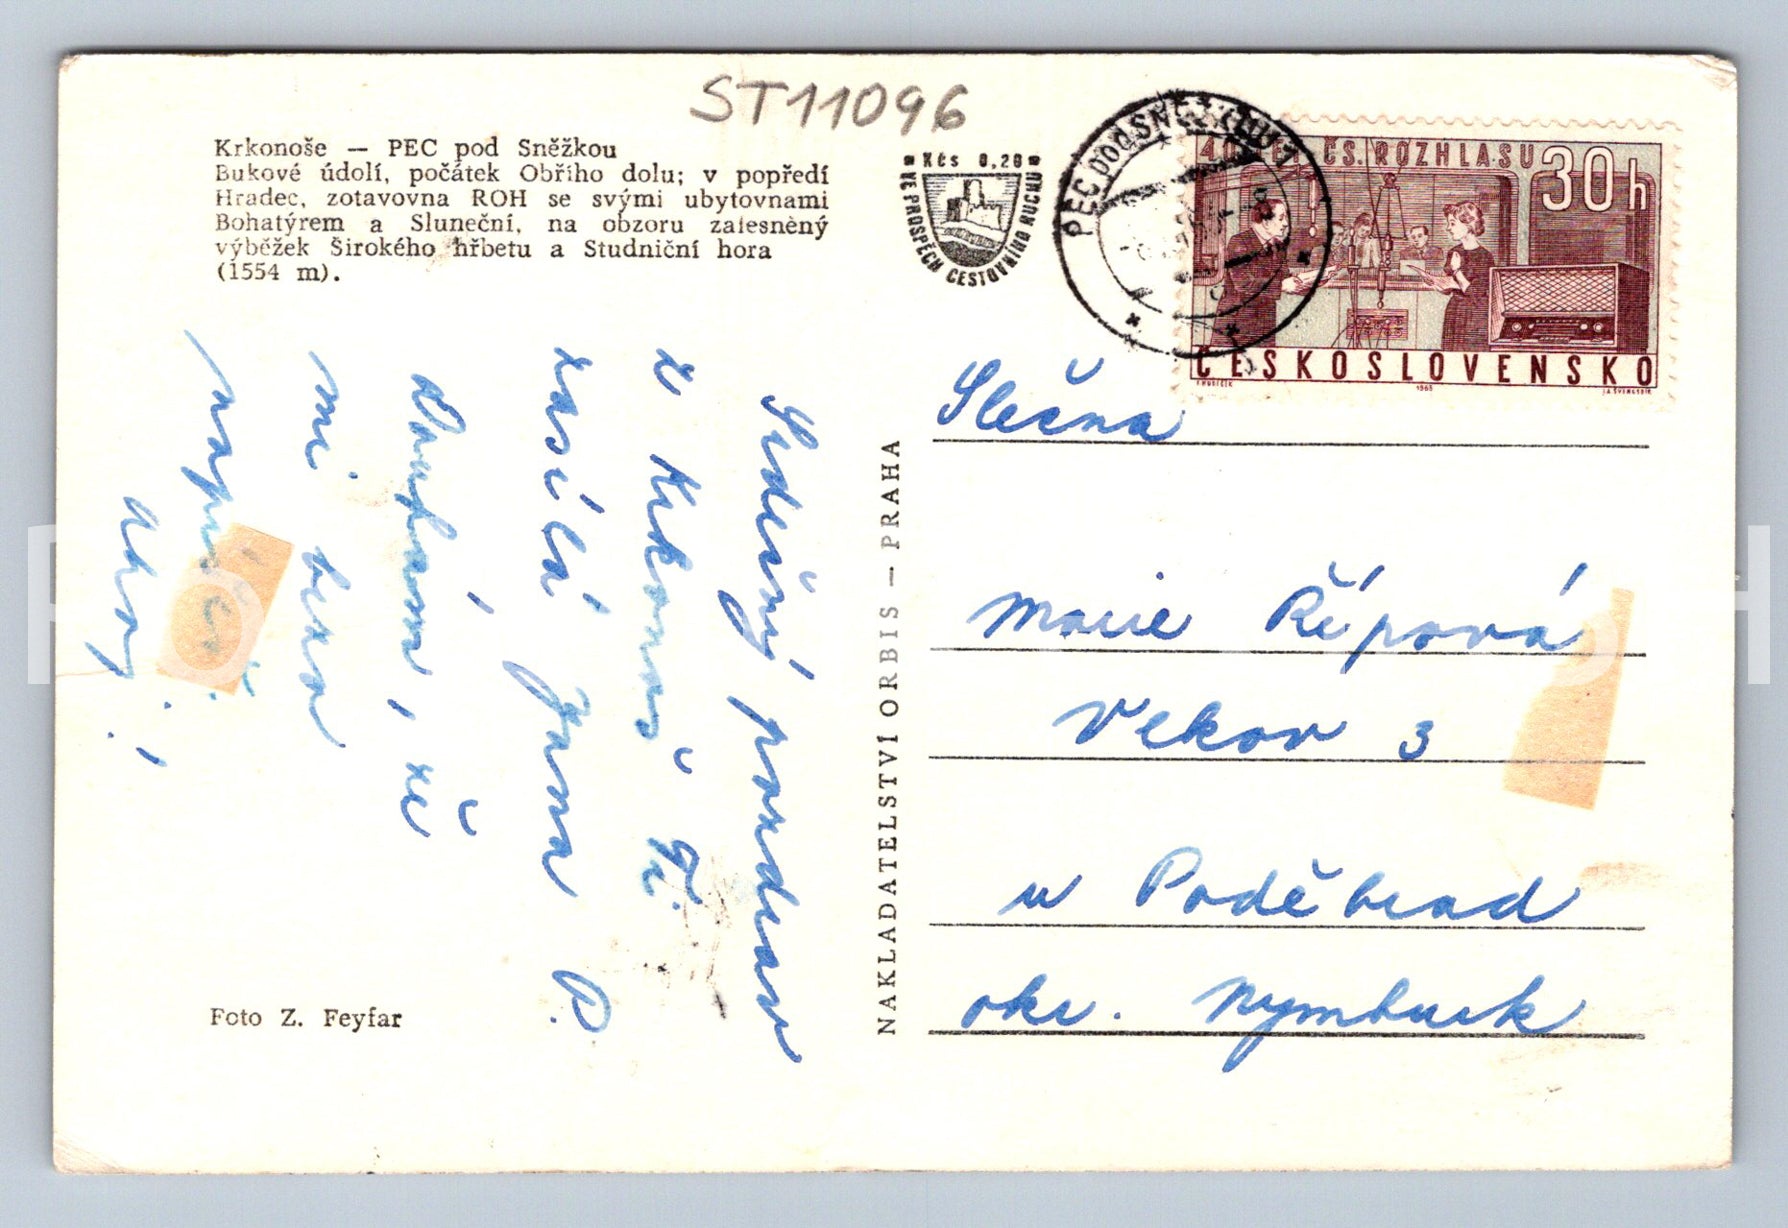 ST11096
Krkonoše — PEC pod Sněžkou
Bukové údolí, počátek Obřího dolu; v popředí
Hradec, zotavovna ROH se svými ubytovnami
Bohatýrem a Sluneční, na obzoru zalesněný
výběžek Širokého hřbetu a Studniční hora
(1554 m).
Kčs 0.20
VE PROSPĚCH CESTOVNÍHO RUCHU
PEC POD SNĚŽKOU 1
ČS. ROZHLASU 30h
ČESKOSLOVENSKO
Srdečný pozdrav
z Krkonoš Ti
zasílá Jana P.
Doufám, že
mi brzo
napíšeš.
Ahoj!
Foto Z. Feyfar
NAKLADATELSTVÍ ORBIS — PRAHA
Slečna
Marie Řípová
Vekov 3
u Poděbrad
okr. Nymburk